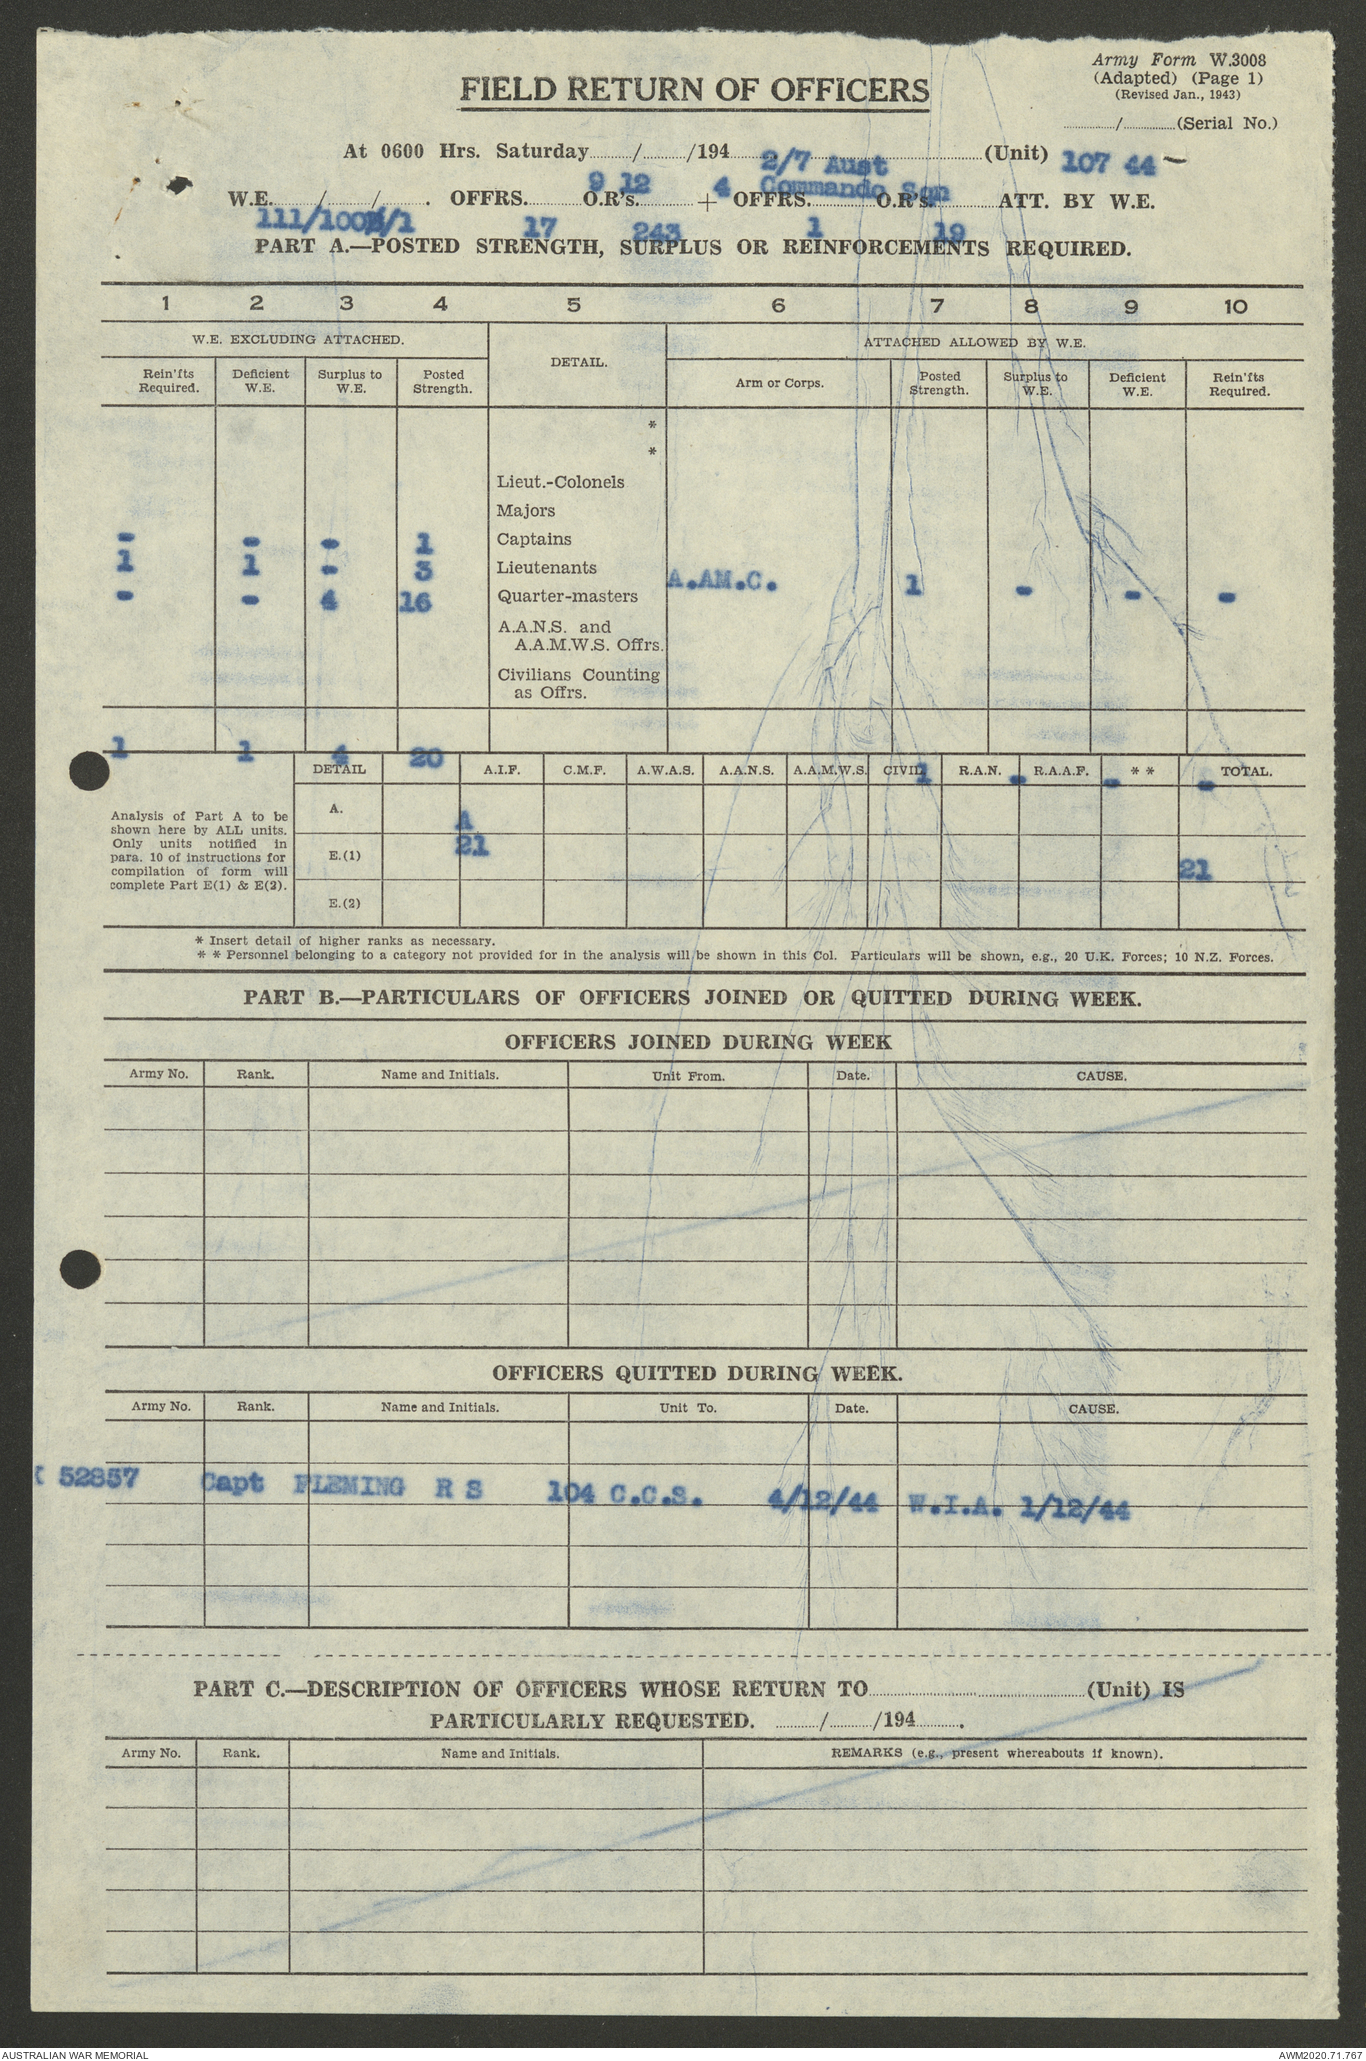 Army Form W.3008
(Adapted) (Page 1)
(Revised Jan., 1943)
FIELD RETURN OF OFFICERS
............/............(Serial No.)
At 0600 Hrs. Saturday........./........./194......... (Unit) 107 44 -
2/7 Aust
9 12 4 Commando Sqn
W.E........./........./......... . OFFRS.........O.R's.........+ OFFRS.........O.R's.........ATT. BY W.E.
17 243 1 19
PART A.—POSTED STRENGTH, SURPLUS OR REINFORCEMENTS REQUIRED.
1 2 3 4 5 6 7 8 9 10
W.E. EXCLUDING ATTACHED. DETAIL. ATTACHED ALLOWED BY W.E.
Rein'fts Required. Deficient W.E. Surplus to W.E. Posted Strength. Arm or Corps. Posted Strength. Surplus to W.E. Deficient W.E. Rein'fts Required.
*
*
Lieut.-Colonels
Majors
- - - 1 Captains
1 1 - 3 Lieutenants A.AM.C. 1 - - -
- - 4 16 Quarter-masters
A.A.N.S. and
A.A.M.W.S. Offrs.
Civilians Counting
as Offrs.
1 1 4 20 1 - - -
DETAIL A.I.F. C.M.F. A.W.A.S. A.A.N.S. A.A.M.W.S. CIVIL R.A.N. R.A.A.F. * * TOTAL.
Analysis of Part A to be
shown here by ALL units.
Only units notified in
para. 10 of instructions for
compilation of form will
complete Part E(1) & E(2).
A. A
21 21
E.(1)
E.(2)
* Insert detail of higher ranks as necessary.
* * Personnel belonging to a category not provided for in the analysis will be shown in this Col. Particulars will be shown, e.g., 20 U.K. Forces; 10 N.Z. Forces.
PART B.—PARTICULARS OF OFFICERS JOINED OR QUITTED DURING WEEK.
OFFICERS JOINED DURING WEEK
Army No. Rank. Name and Initials. Unit From. Date. CAUSE.
OFFICERS QUITTED DURING WEEK.
Army No. Rank. Name and Initials. Unit To. Date. CAUSE.
52857 Capt FLEMING R S 104 C.C.S. 4/12/44 W.I.A. 1/12/44
PART C.—DESCRIPTION OF OFFICERS WHOSE RETURN TO.................................(Unit) IS
PARTICULARLY REQUESTED. ........./........./194.........
Army No. Rank. Name and Initials. REMARKS (e.g., present whereabouts if known).
AUSTRALIAN WAR MEMORIAL AWM2020.71.767